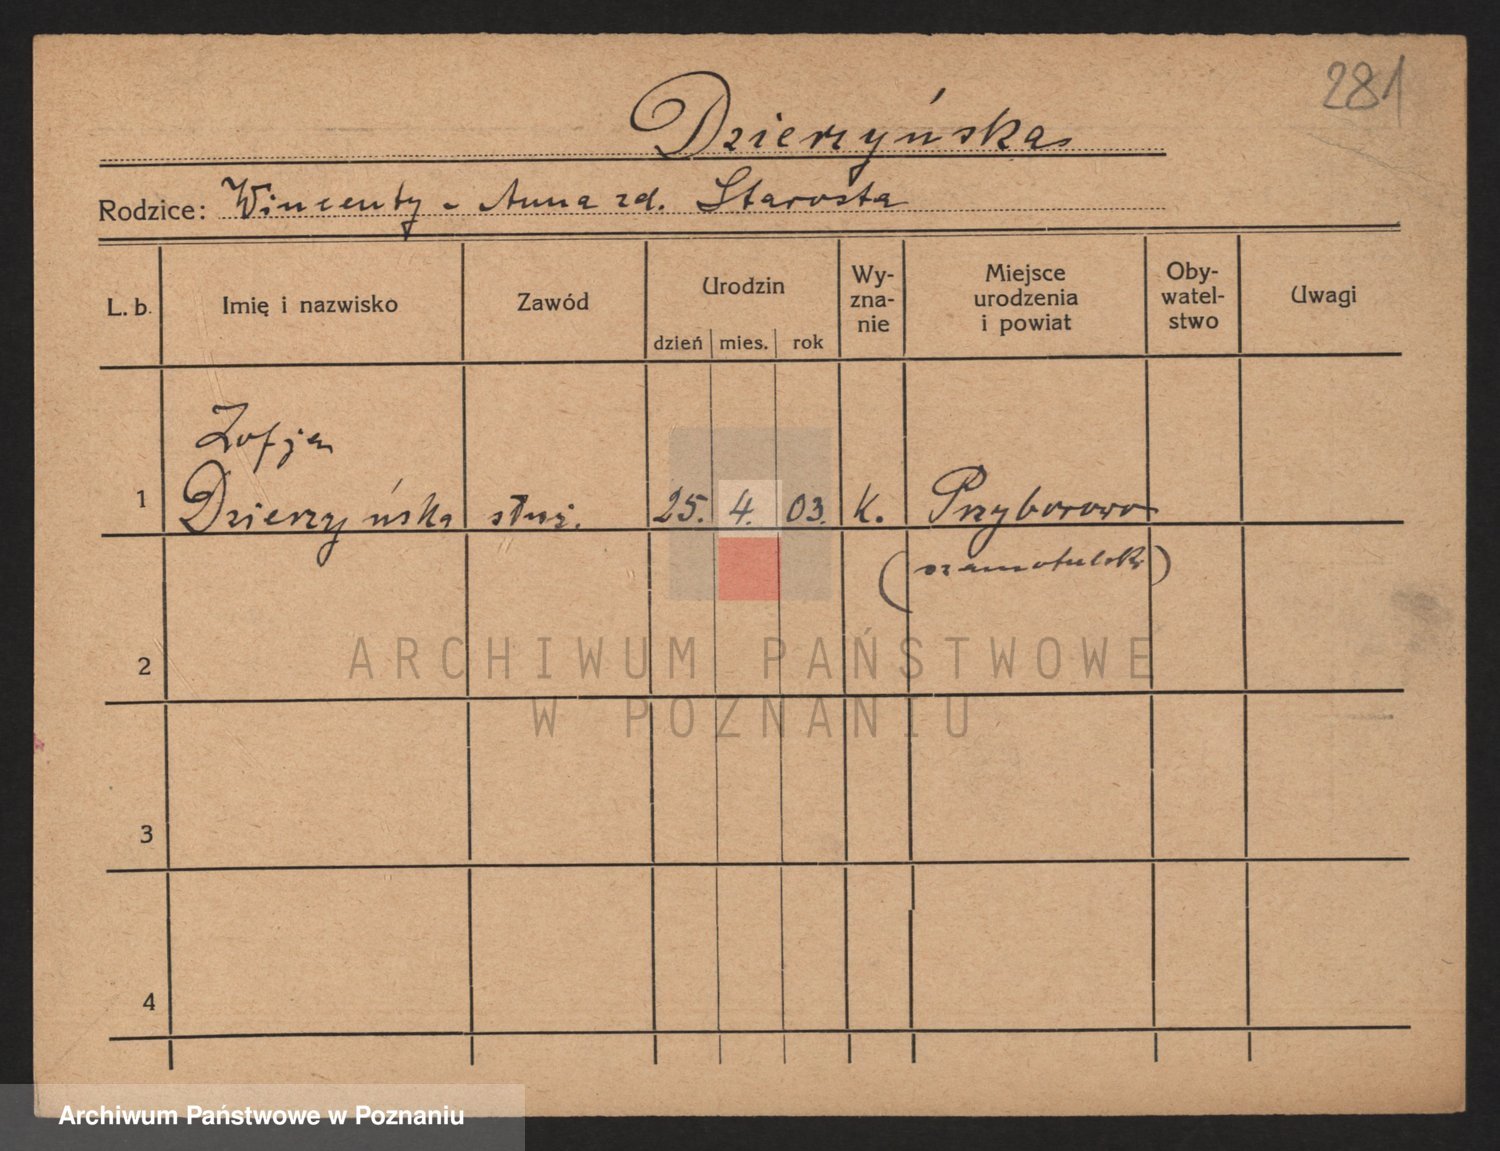 281
Dzierzyńska
Rodzice: Wincenty - Anna zd. Starosta
L. b. Imię i nazwisko Zawód Urodzin Wy-zna-nie Miejsce urodzenia i powiat Oby-watel-stwo Uwagi
dzień mies. rok
Zofja
1 Dzierzyńska służ. 25. 4. 03. k. Przyborowo
(szamotulski)
2
ARCHIWUM PAŃSTWOWE
W POZNANIU
3
4
Archiwum Państwowe w Poznaniu